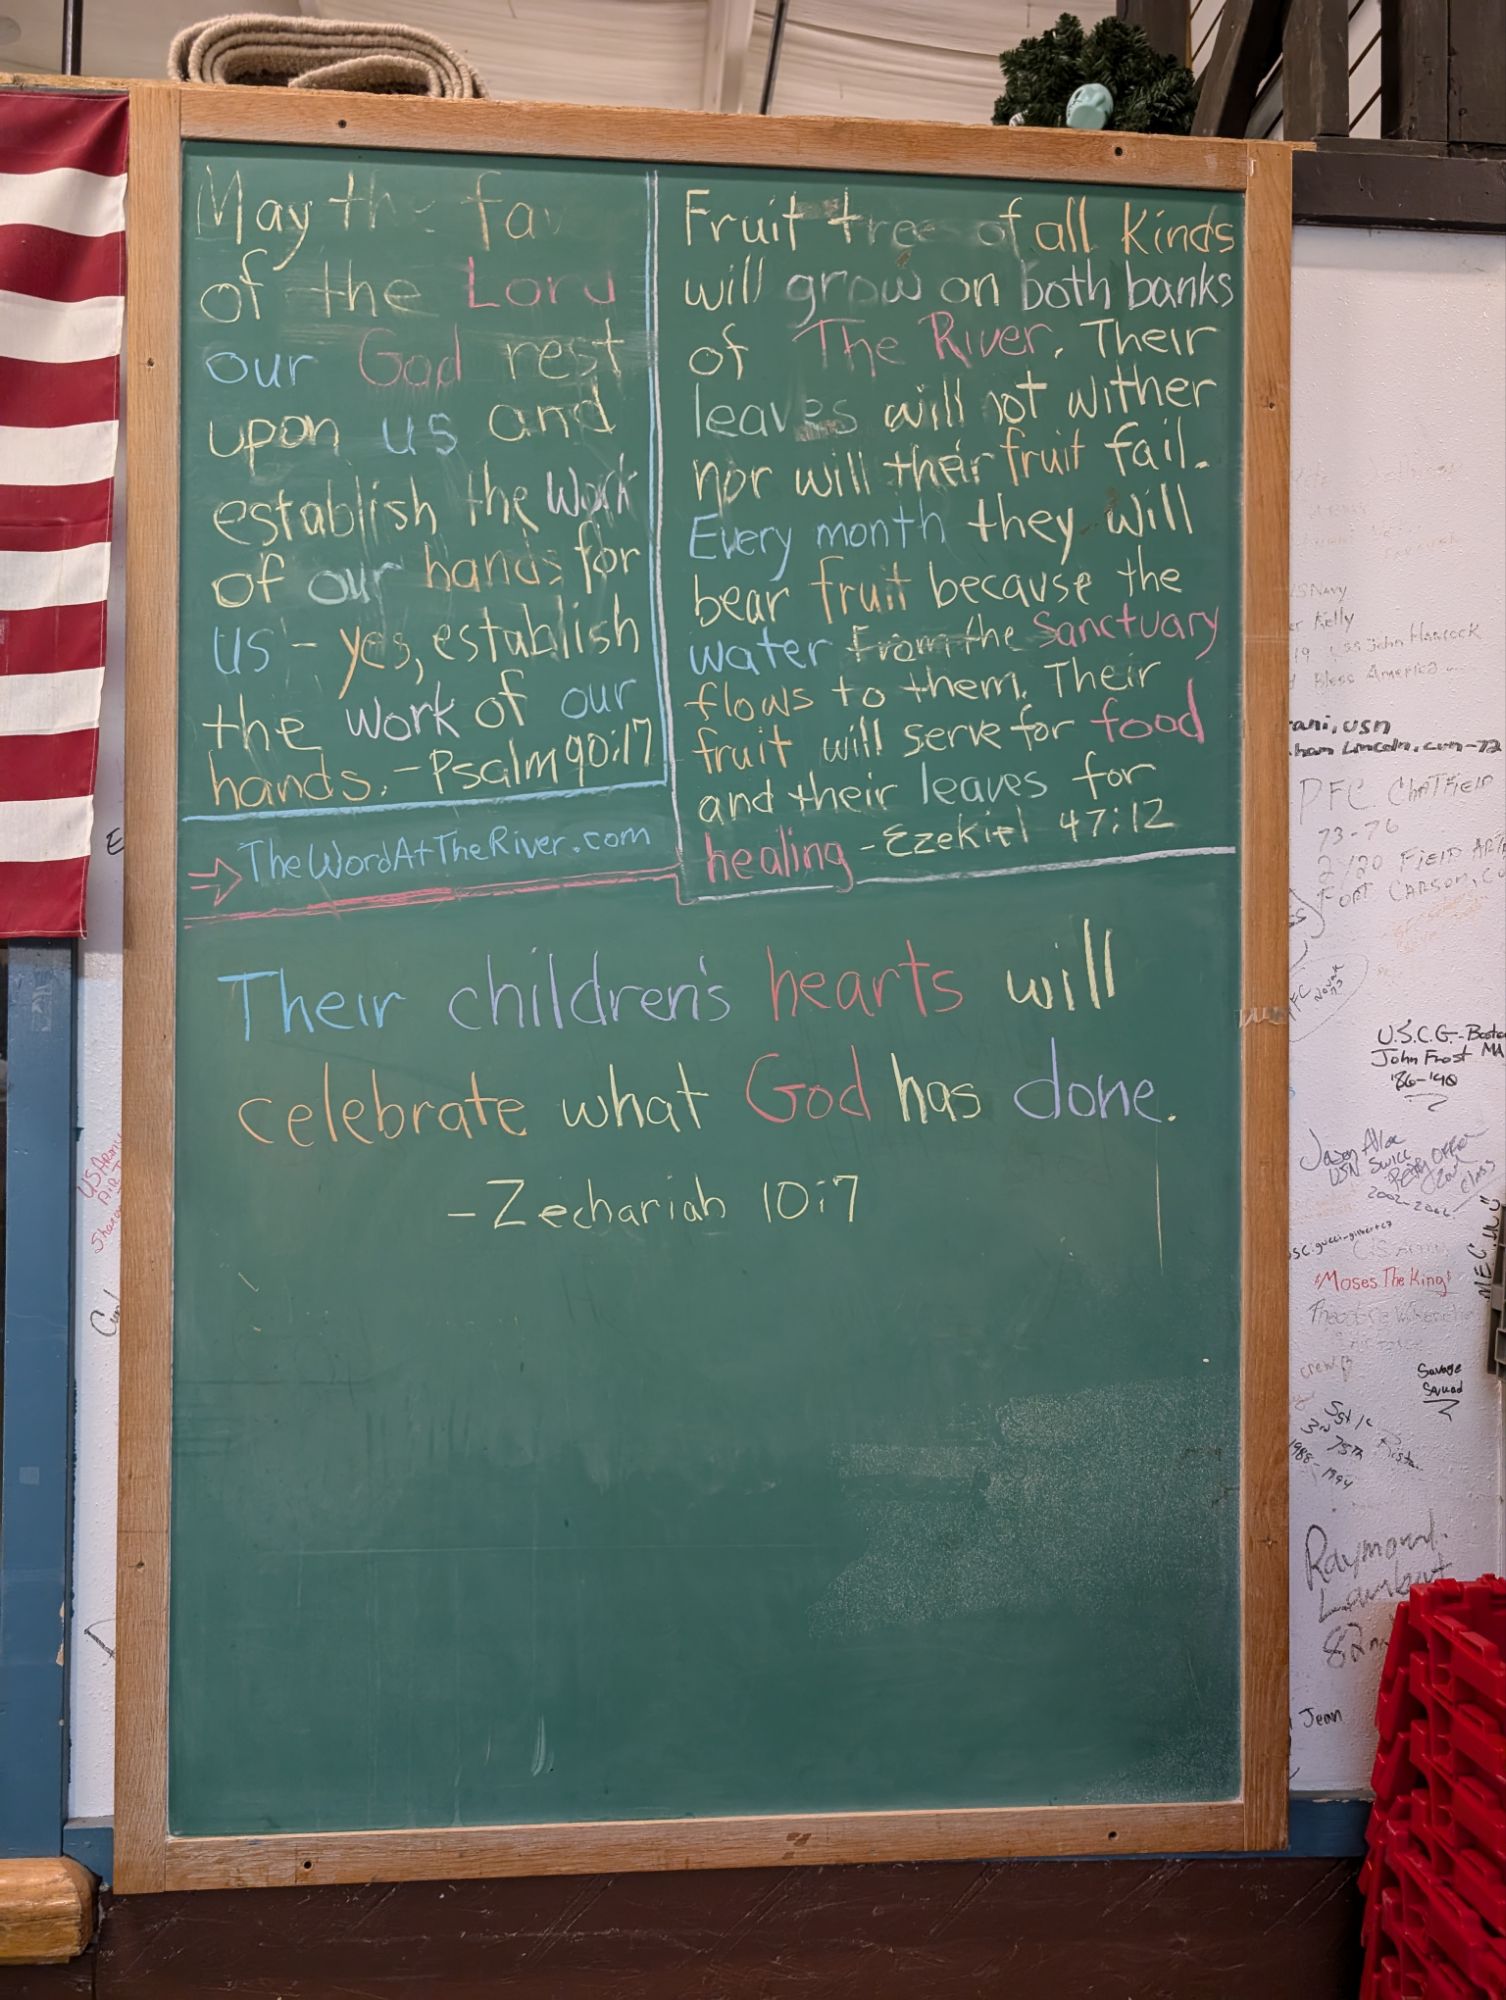 May the fa
of the Lord
our God rest
upon us and
establish the work
of our hands for
us - yes, establish
the work of our
hands. - Psalm 90:17
TheWordAtTheRiver.com
Fruit trees of all kinds
will grow on both banks
of The River. Their
leaves will not wither
nor will their fruit fail.
Every month they will
bear fruit because the
water from the Sanctuary
flows to them. Their
fruit will serve for food
and their leaves for
healing - Ezekiel 47:12
Their children's hearts will
celebrate what God has done.
- Zechariah 10:7
Kelly
USS John Hancock
Bless America
rani, usn
ham Lincoln, cvn-72
PFC Chatfield
73-76
2/20 Field Art
Fort Carson, Co
U.S.C.G.-Bosto
John Frost MA
'86-'90
2002-2002
"Moses The King"
Savage
Squad
3rd 75th
1988-1994
Raymond
Jean
US Army